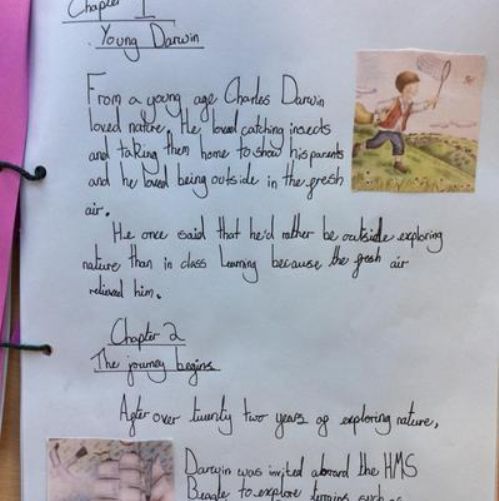 Chapter 1
Young Darwin
From a young age Charles Darwin
loved nature. He loved catching insects
and taking them home to show his parents
and he loved being outside in the fresh
air.
He once said that he'd rather be outside exploring
nature than in class learning because the fresh air
relieved him.
Chapter 2
The journey begins
After over twenty two years of exploring nature,
Darwin was invited aboard the HMS
Beagle to explore terrains such